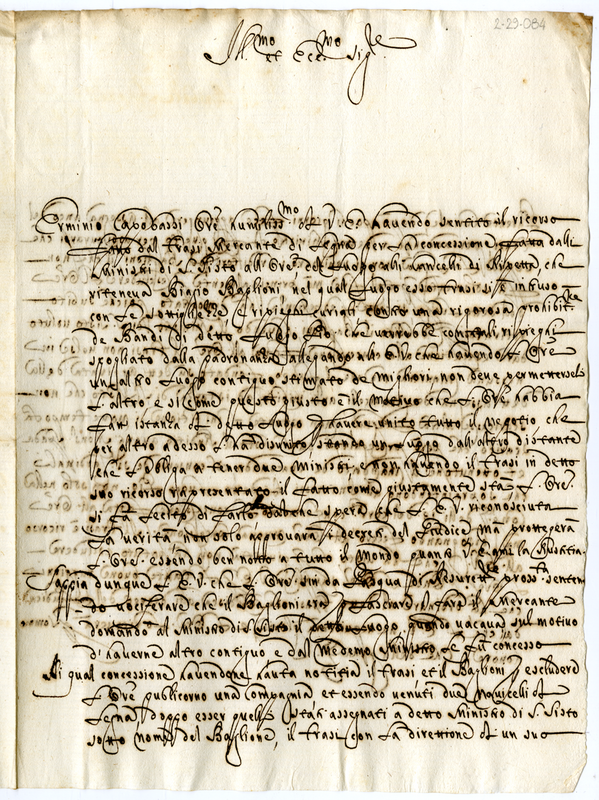 2-29-084
Ill.mo et Ecc.mo Sig.re
Erminio Capobassi Ore humiliss.mo di V. E. havendo sentito il ricorso
fatto dal Trasi Mercante di Legna per la concessione fatta dalli
Ministri di S. Sisto all'Ore del luogo alli Mancelli di Ripetta, che
riteneva Biagio Baglioni nel qual luogo esso Trasi si è infuso
con le sottigliezze contro una rigorosa prohibit.ne
de Bandi di detto luogo che verrebbe con tali ripieghi
spogliato dalla padronanza allegando che havendo l'Ore
un altro luogo contiguo stimato de migliori non deve permetterseli
l'altro e si come questo giusto è il motivo che l'Ore habbia
fatt'istanza di detto luogo havere unito tutto il negotio, che
per altro adesso l'ha disunito stando un luogo dall'altro distante
che l'obliga a tener due Ministri, e non havendo il Trasi in detto
suo ricorso rapresentato il fatto come giustamente stà, l'Ore
si fà lecito di farlo, spera che V. E. riconosciuta
la verità non solo approvarà il decreto del Giudice mà protteggerà
l'Ore essendo ben notto a tutto il Mondo quanto V. E. ami la Giustitia
Saccia dunque V. E. che l'Ore sin da pross. senten
do vociferare che il Baglioni lasciare il Mercante
domandò al Ministro di S. Sisto il detto luogo quando vacava sul motivo
d'haverne altro contiguo e dal Medemo Ministro le fù concesso
Di qual concessione havendone hauta notitia il Trasi et il Baglioni escludere
l'Ore publicorno una Compagnia et essendo venuti due Navicelli di
Legna doppo esser quelli stati assegnati a detto Ministro di S. Sisto
sotto nome del Baglione, il Trasi con la direttione di un suo